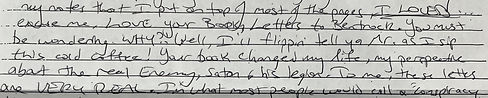 my notes that I put on top of most of the pages, I LOVED..
excuse me, LOVE your Book, Letters to Bentrock. You must
be wondering WHY?? Well, I'll flippin' tell ya Mr. as I sip
this cold coffee! Your book changed my life, my perspective
about the real Enemy, Satan & his legion. To me, these letters
are VERY REAL. In what most people would call a "conspiracy